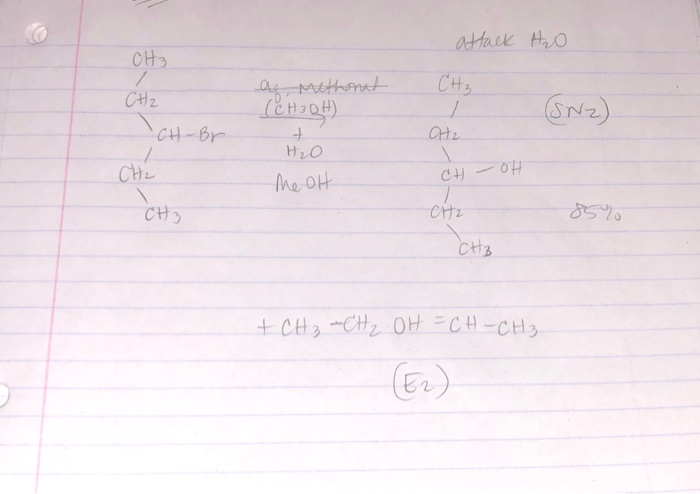 attack H2O
CH3
CH2
CH-Br
CH2
CH3
aq methonal
(CH3OH)
+
H2O
MeOH
CH3
CH2
CH - OH
CH2
CH3
(SN2)
85%
+ CH3-CH2 OH = CH-CH3
(E2)